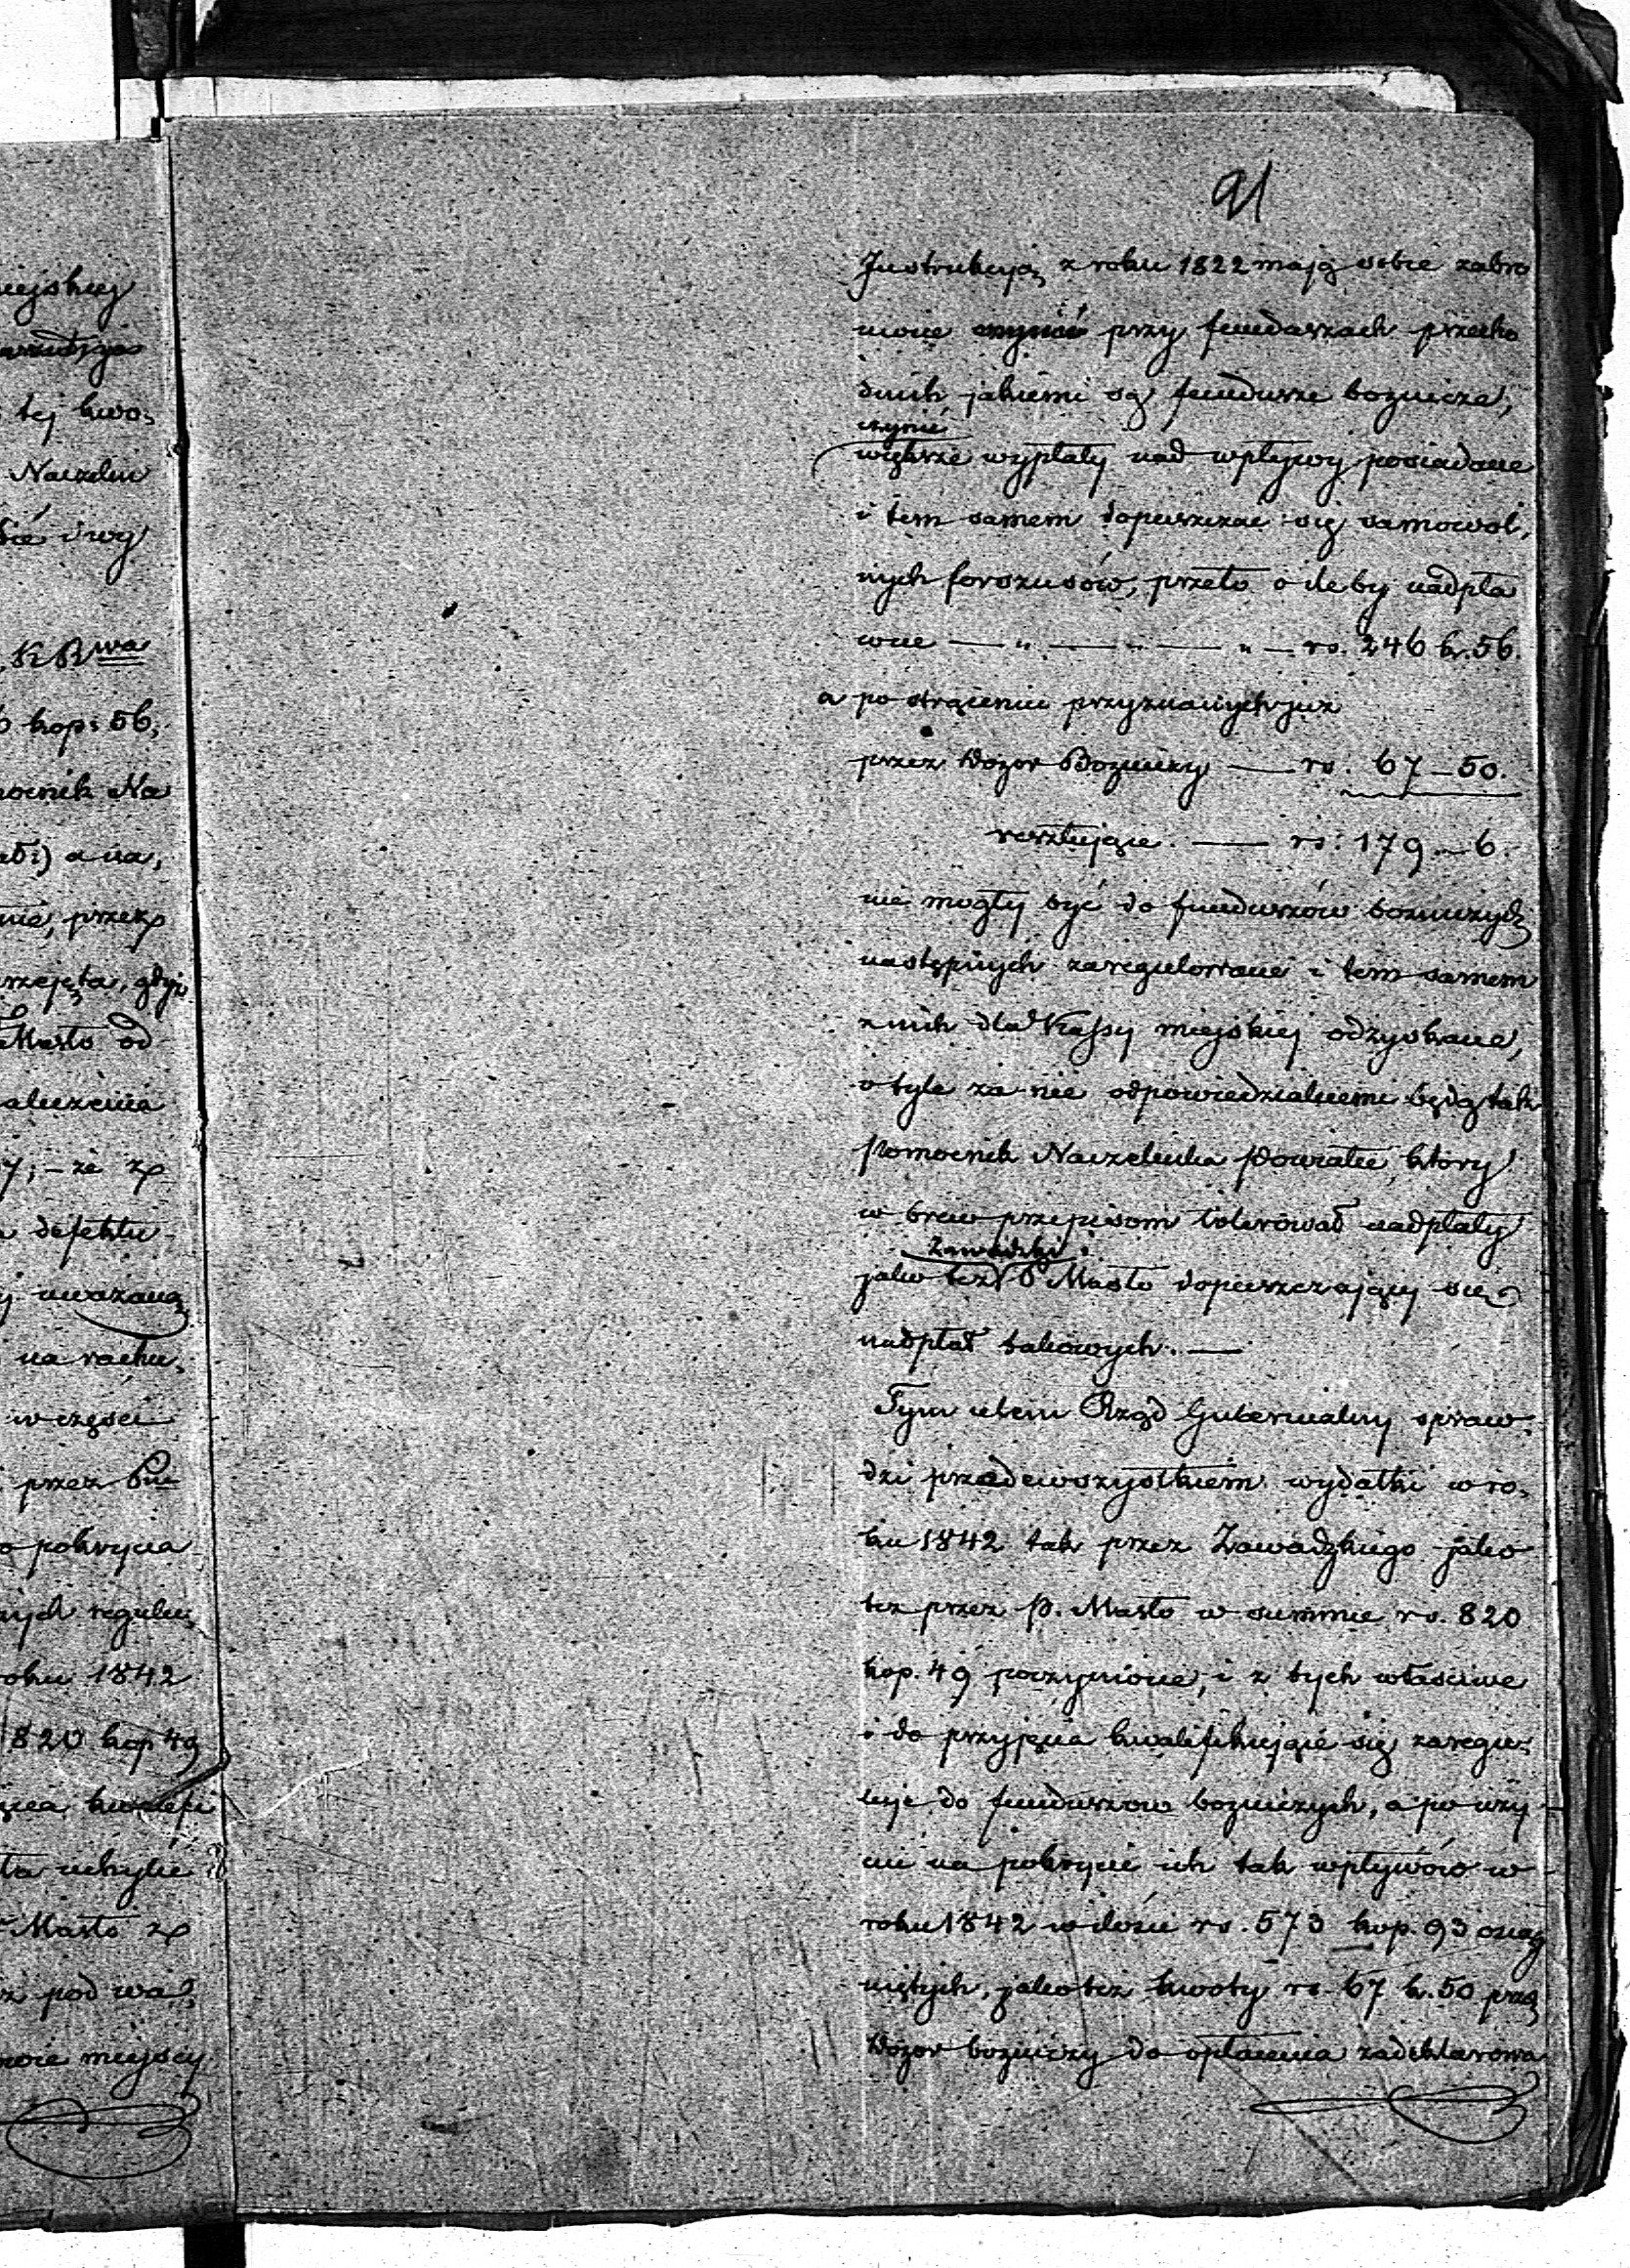 iejskiej
tej kwo,
Naczelni
sić i wy
K R wa
kop: 56,
mocnik Na
a na,
przez
rzejęta, gdyż
Masło od
aluzenia
7; – że z
defektu
j uważaną
na rachu,
w części
przez
o pokrycia
nych regulu,
roku 1842
820 kop 49
ęcia kwalifi
ta uchylić
Masło z
ż pod wa,
miejscy
91
Instrukcyją z roku 1822 mają sobie zabro
nione czynić przy funduszach przecho
dnich jakiemi są fundusze boznicze,
czynić
większe wypłaty nad wpływy posiadane
i tem samem dopuszczać się samowol,
nych forszusów, przeto o ile by nadpła
cone — „ — „ — „ — rs. 246 k. 56.
a po strąceniu przyznanych już
przez Dozor Bozniczy — rs. 67 – 50.
resztujące. — rs: 179 – 6.
nie mogły być do funduszów bozniczych
następnych zaregulowane i tem samem
z nich dla Kassy miejskiej odzyskane,
o tyle za nie odpowiedzialnemi będą tak
Pomocnik Naczelnika Powiatu, który
w brew przepisom tolerował nadpłaty
Zawadzki i
jako też P Masło dopuszczający się
nadpłat takowych. —
Tym celem Rząd Gubernialny spraw,
dzi przedewszystkiem wydatki w ro,
ku 1842 tak przez Zawadzkiego jako
też przez P. Masło w summie rs. 820
kop. 49 poczynione, i z tych właściwe
i do przyjęcia kwalifikujące się zaregu,
luje do funduszów bozniczych, a po uży
ciu na pokrycie ich tak wpływów w
roku 1842 w ilości rs. 573 kop. 93 osią
gniętych, jako też kwoty rs. 67 k. 50 przez
Dozor bozniczy do opłacenia zadeklarowa